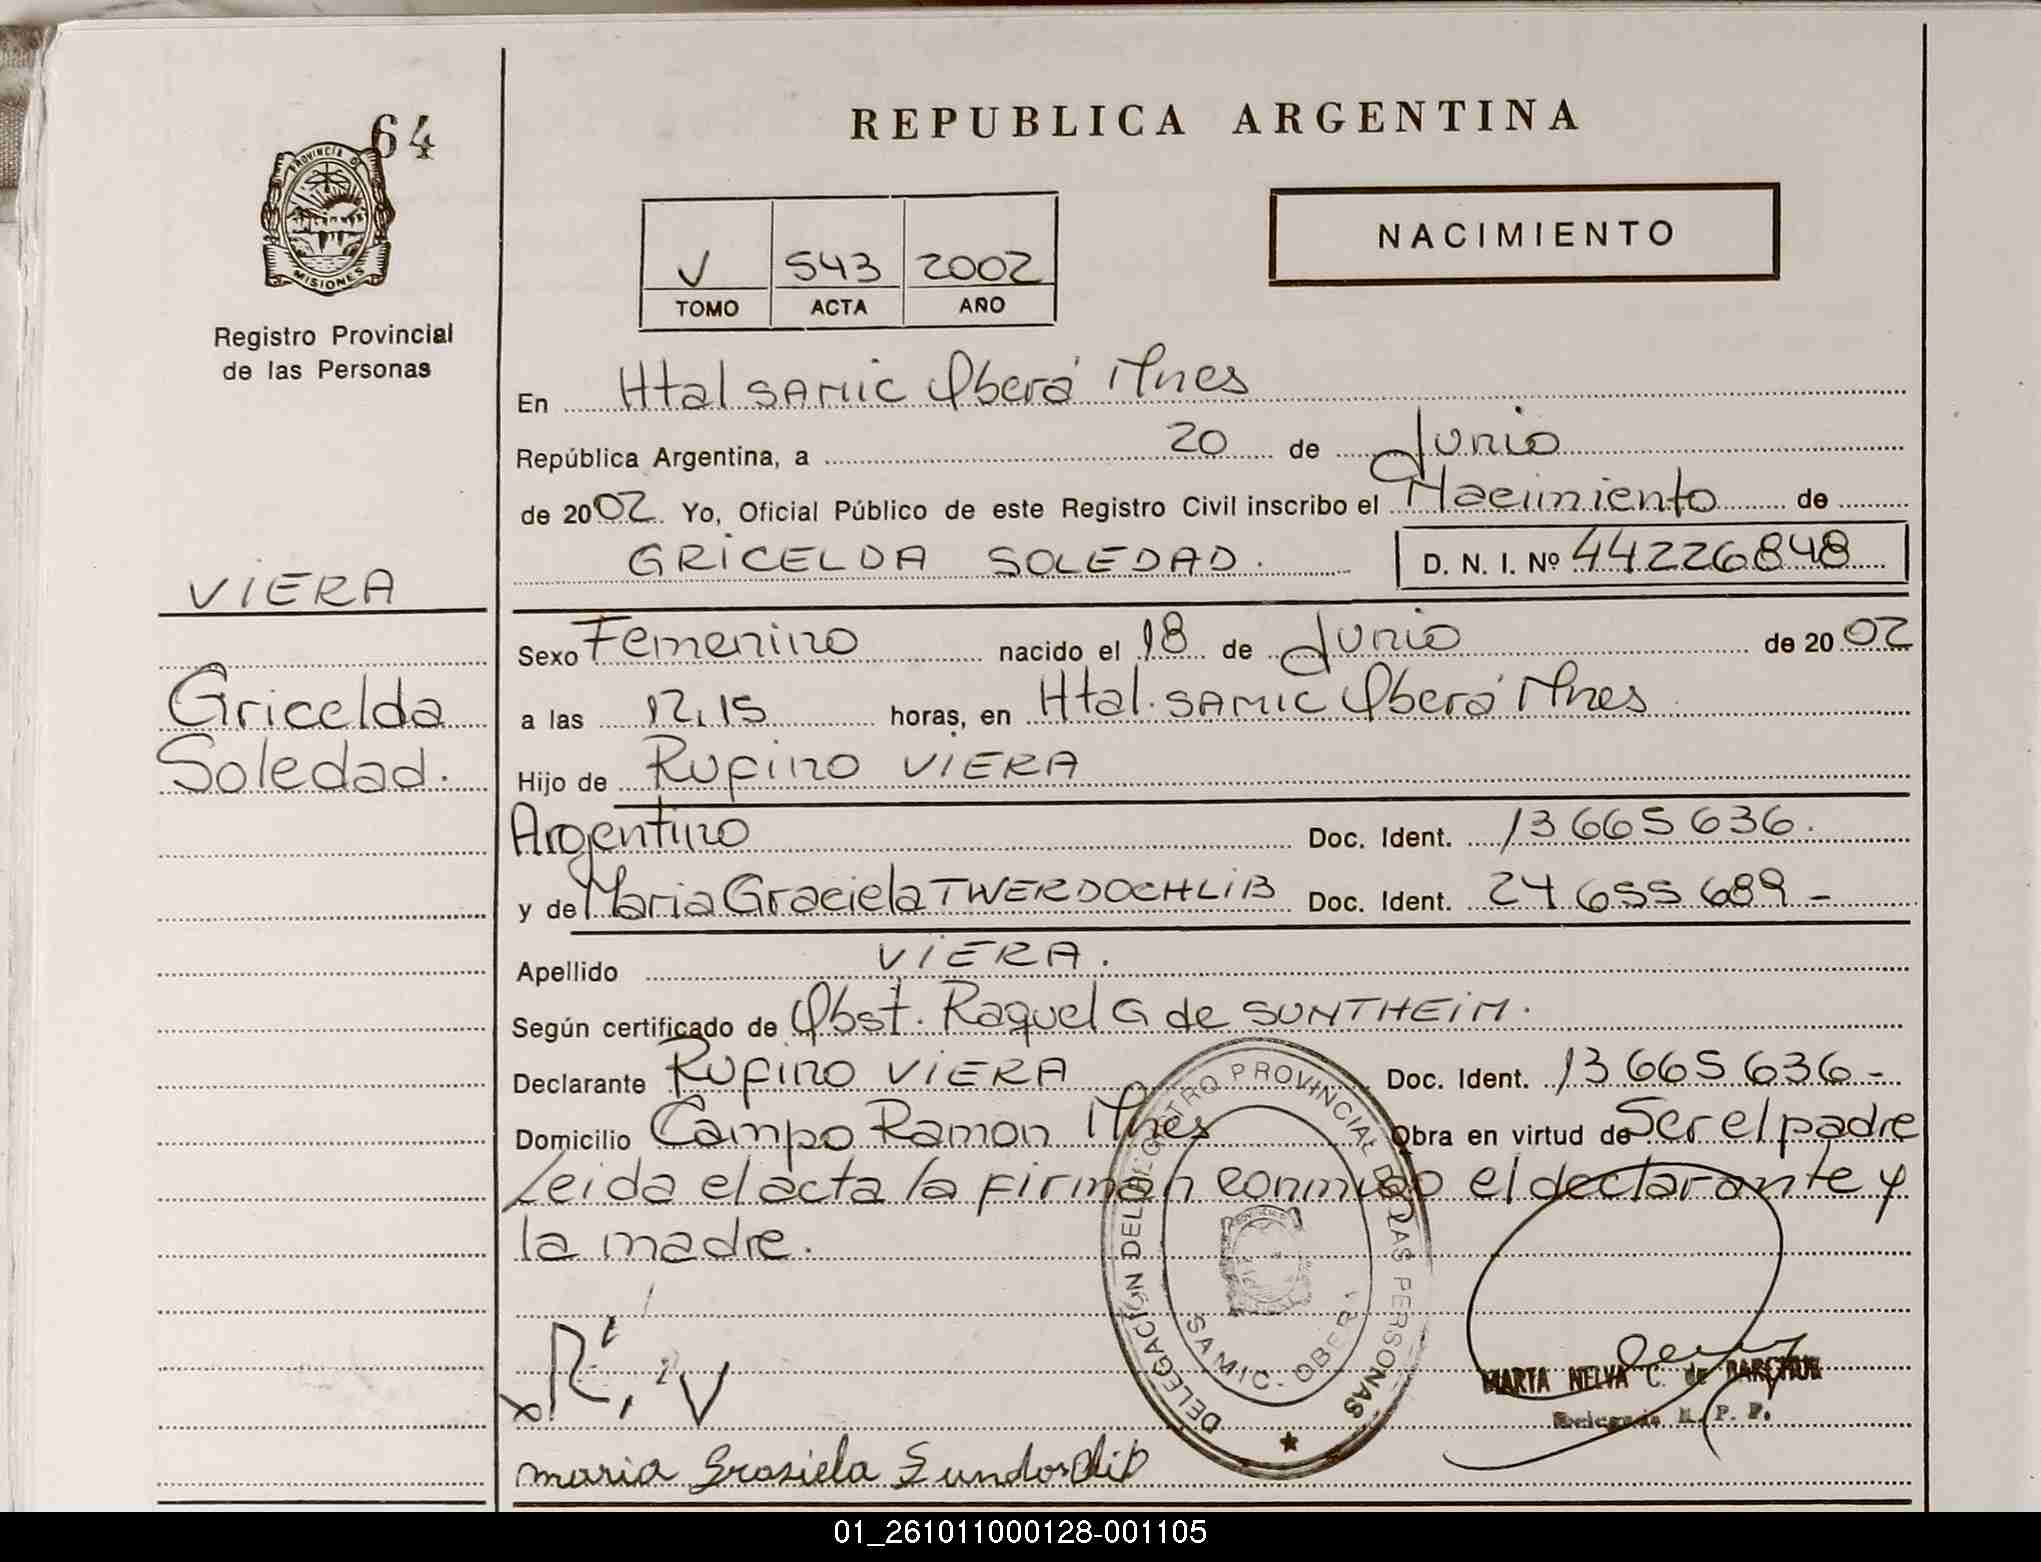 64
PROVINCIA DE
MISIONES
Registro Provincial
de las Personas
REPUBLICA ARGENTINA
V 543 2002
TOMO ACTA AÑO
NACIMIENTO
En Htal SAMIC Oberá Mnes
República Argentina, a 20 de Junio
de 2002 Yo, Oficial Público de este Registro Civil inscribo el Nacimiento de
GRICELDA SOLEDAD. D. N. I. Nº 44226848
VIERA
Gricelda
Soledad.
Sexo Femenino nacido el 18 de Junio de 2002
a las 12,15 horas, en Htal. SAMIC Oberá Mnes
Hijo de Rufino VIERA
Argentino Doc. Ident. 13665636.
y de Maria Graciela TWERDOCHLIB Doc. Ident. 24655689-
Apellido VIERA.
Según certificado de Obst. Raquel G de SUNTHEIM.
Declarante Rufino VIERA Doc. Ident. 13665636-
Domicilio Campo Ramon Mnes Obra en virtud de Ser el padre
Leida el acta la firman conmigo el declarante y
la madre.
DELEGACIÓN DEL REGISTRO PROVINCIAL DE LAS PERSONAS
SAMIC - OBERA
R, V
MARTA NELVA C. de
Delegada R. P. P.
maria Grasiela
01_261011000128-001105